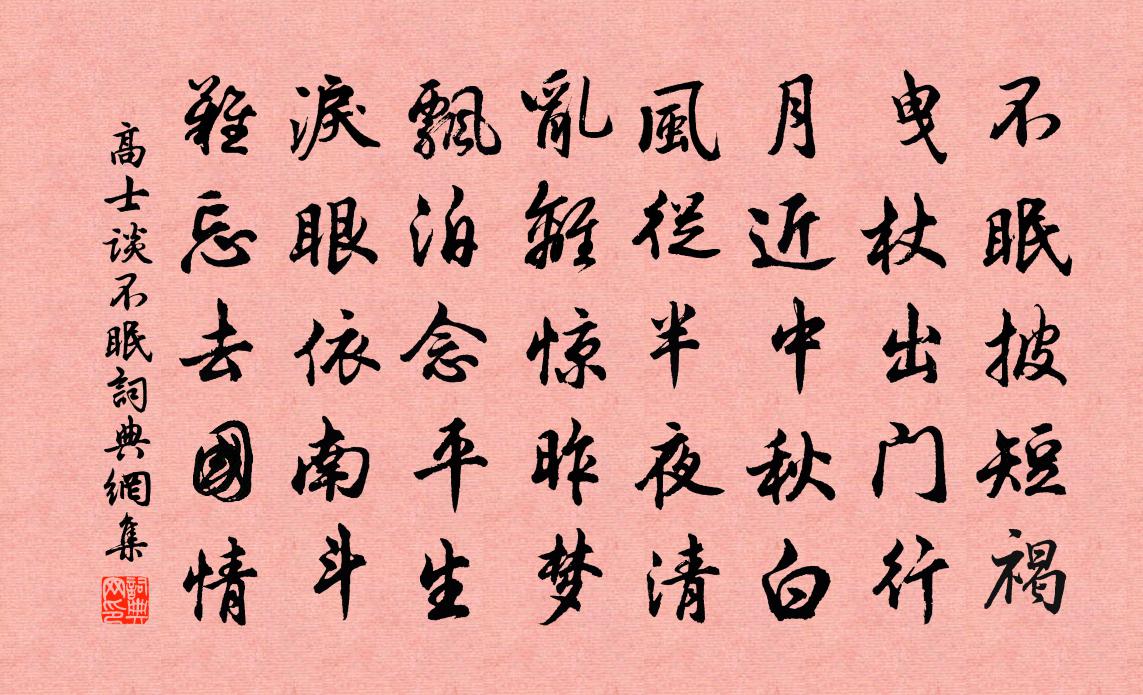 不眠披短褐
曳杖出门行
月近中秋白
風從半夜清
亂離惊昨梦
飄泊念平生
淚眼依南斗
難忘去國情
高士談不眠詞典網集
詞典网印